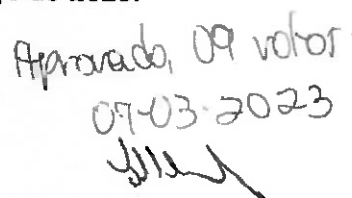 Aprovado, 09 votos
07-03-2023